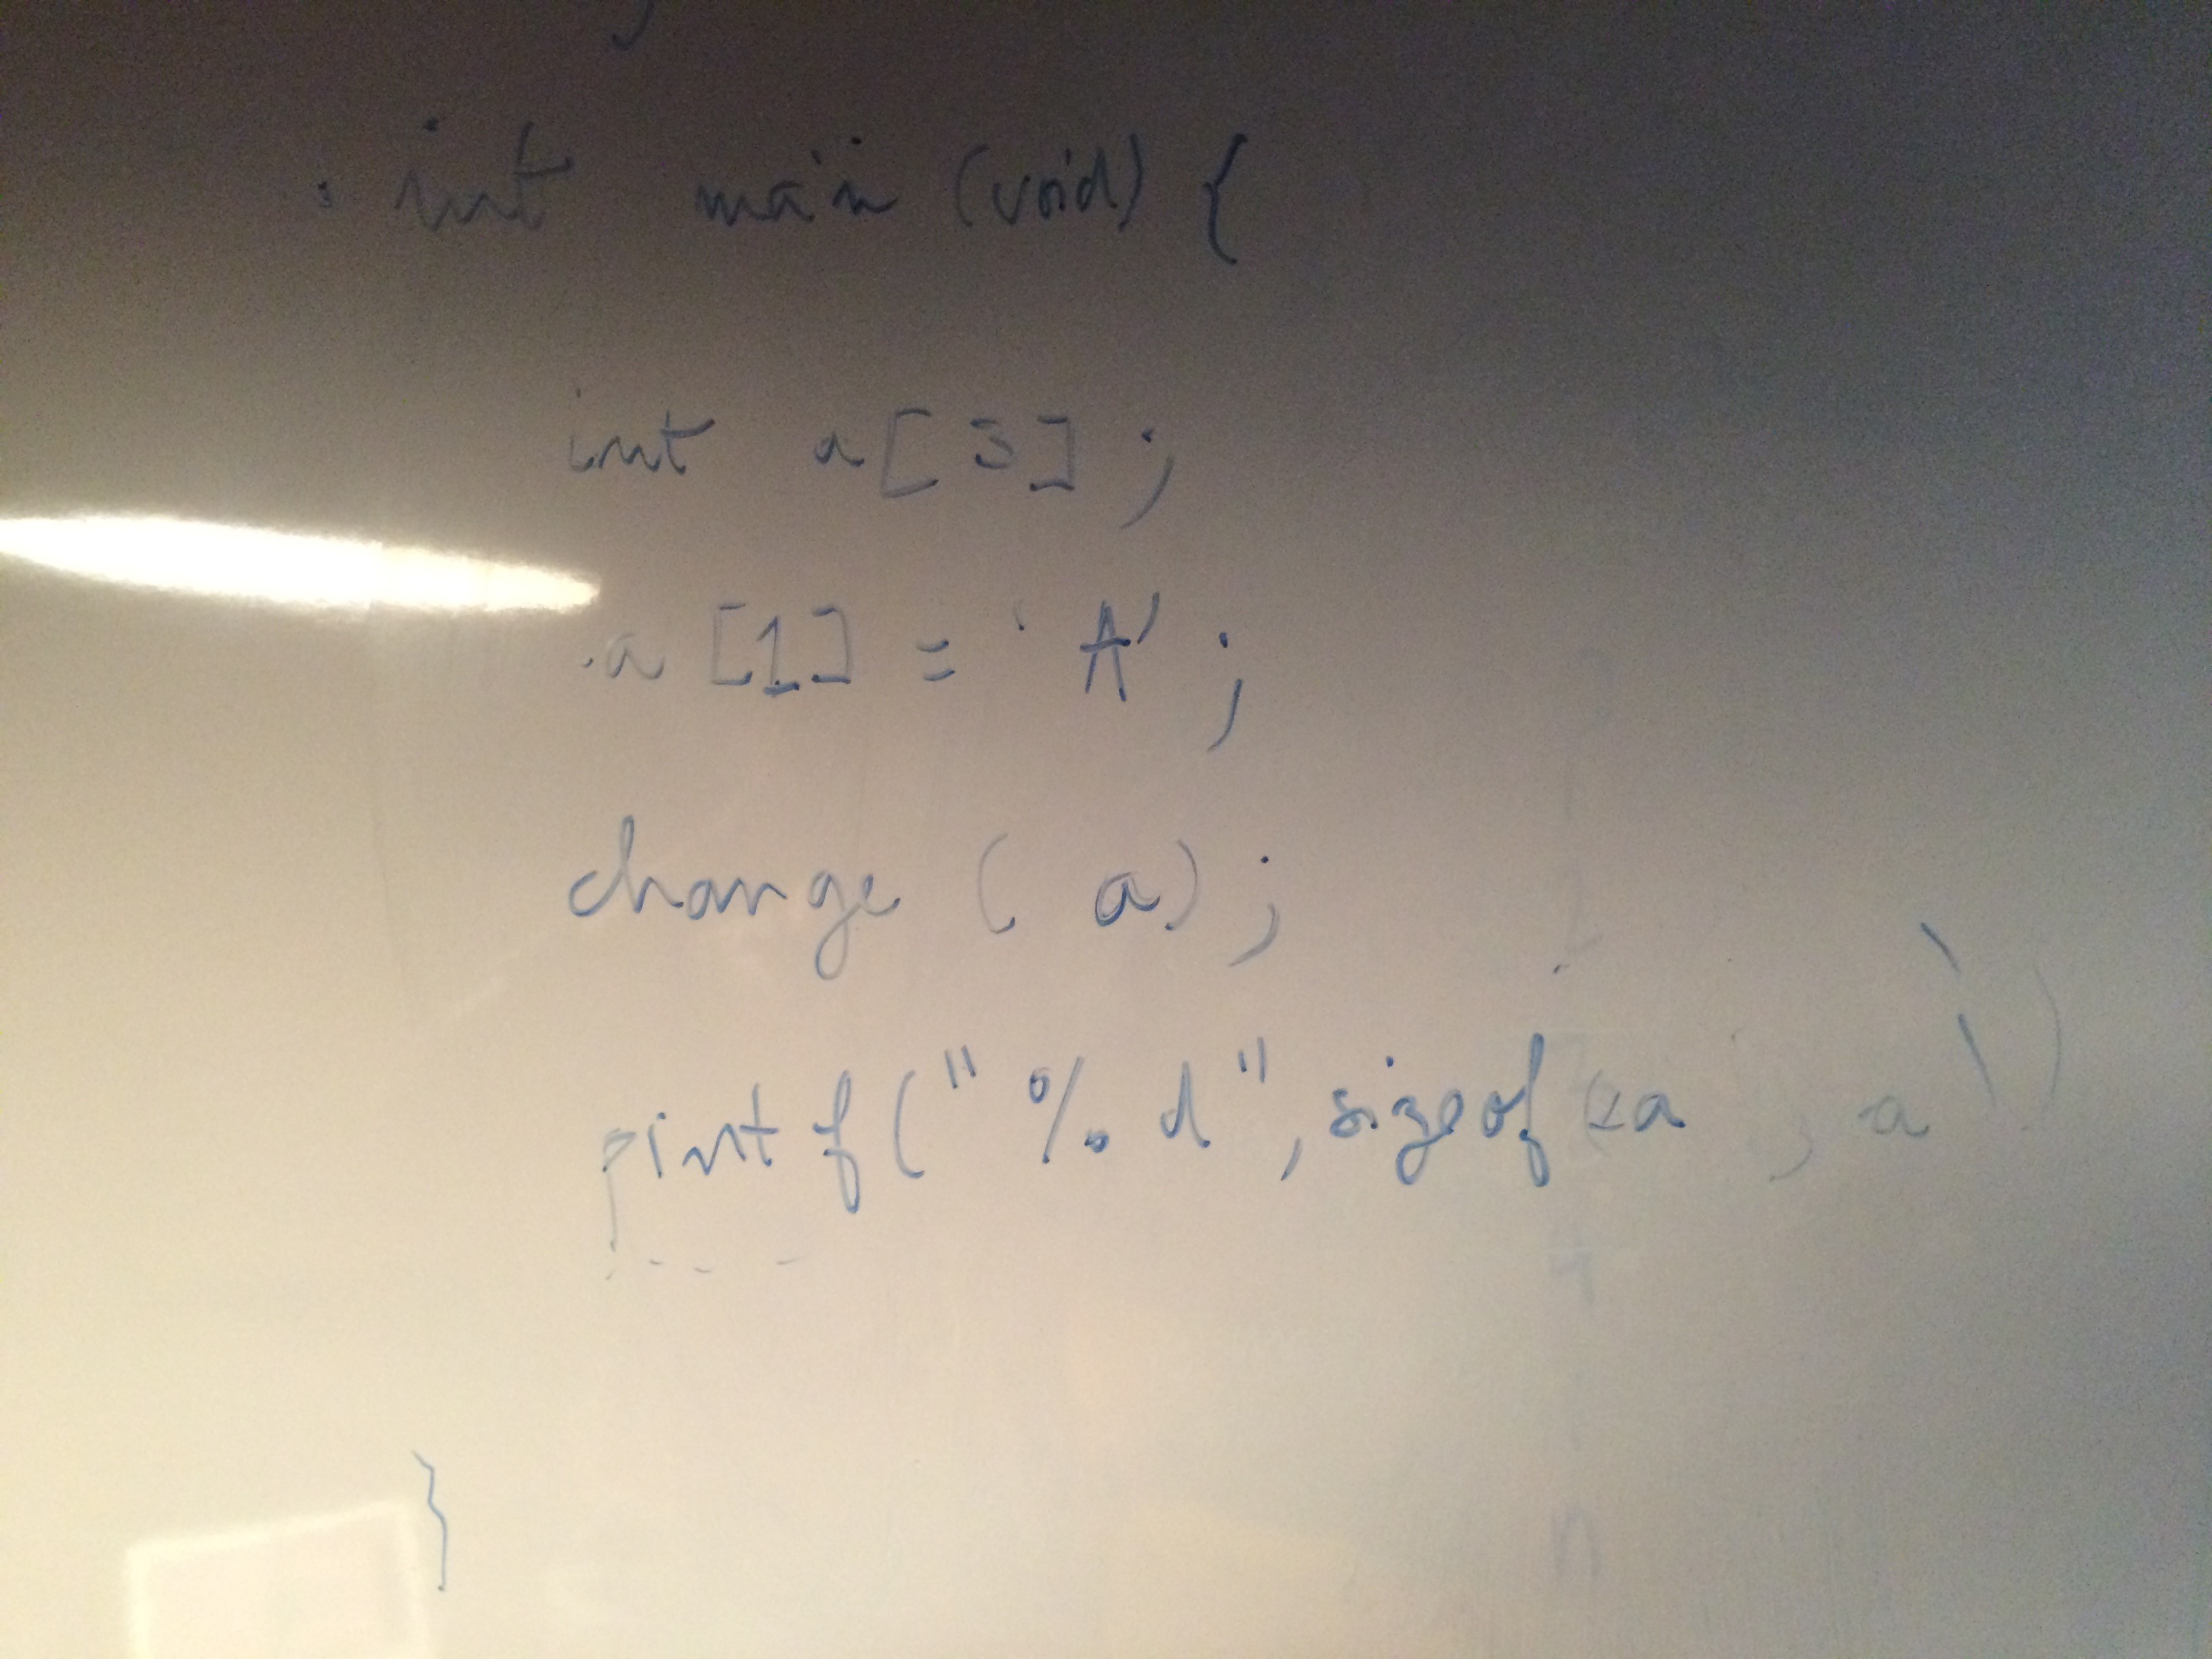 int main (void) {
int a[3];
a[1] = 'A';
change (a);
printf("%d", sizeof a , a ))
}